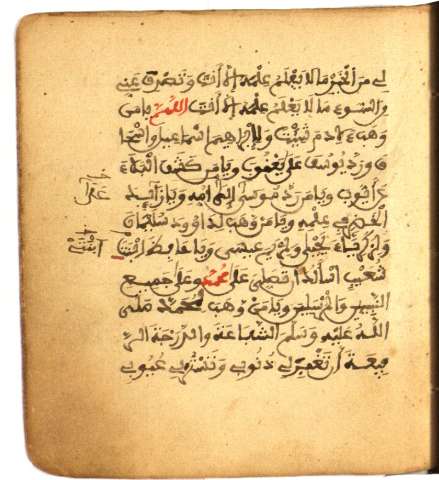 لي من الخير ما لا يعلم علمه إلا أنت وتصرف عني
من السوء ما لا يعلم علمه إلا أنت اللهم يا من
وهب لآدم شيث ولإبراهيم إسماعيل وإسحا
ق ورد يوسف على يعقوب ويا من كشف البلاء
عن أيوب ويا من رد موسى إلى أمه ويا زائد
الخضر في علمه ويا من وهب لداوود سليمان
ولزكرياء يحيى ولمريم عيسى ويا حافظ ابنت
شعيب أسألك أن تصلي على محمد وعلى جميع
النبيين والمرسلين ويا من وهب لمحمد صلى
الله عليه وسلم الشفاعة والدرجة الر
فيعة أن تغفر لي ذنوبي وتستر لي عيوبي